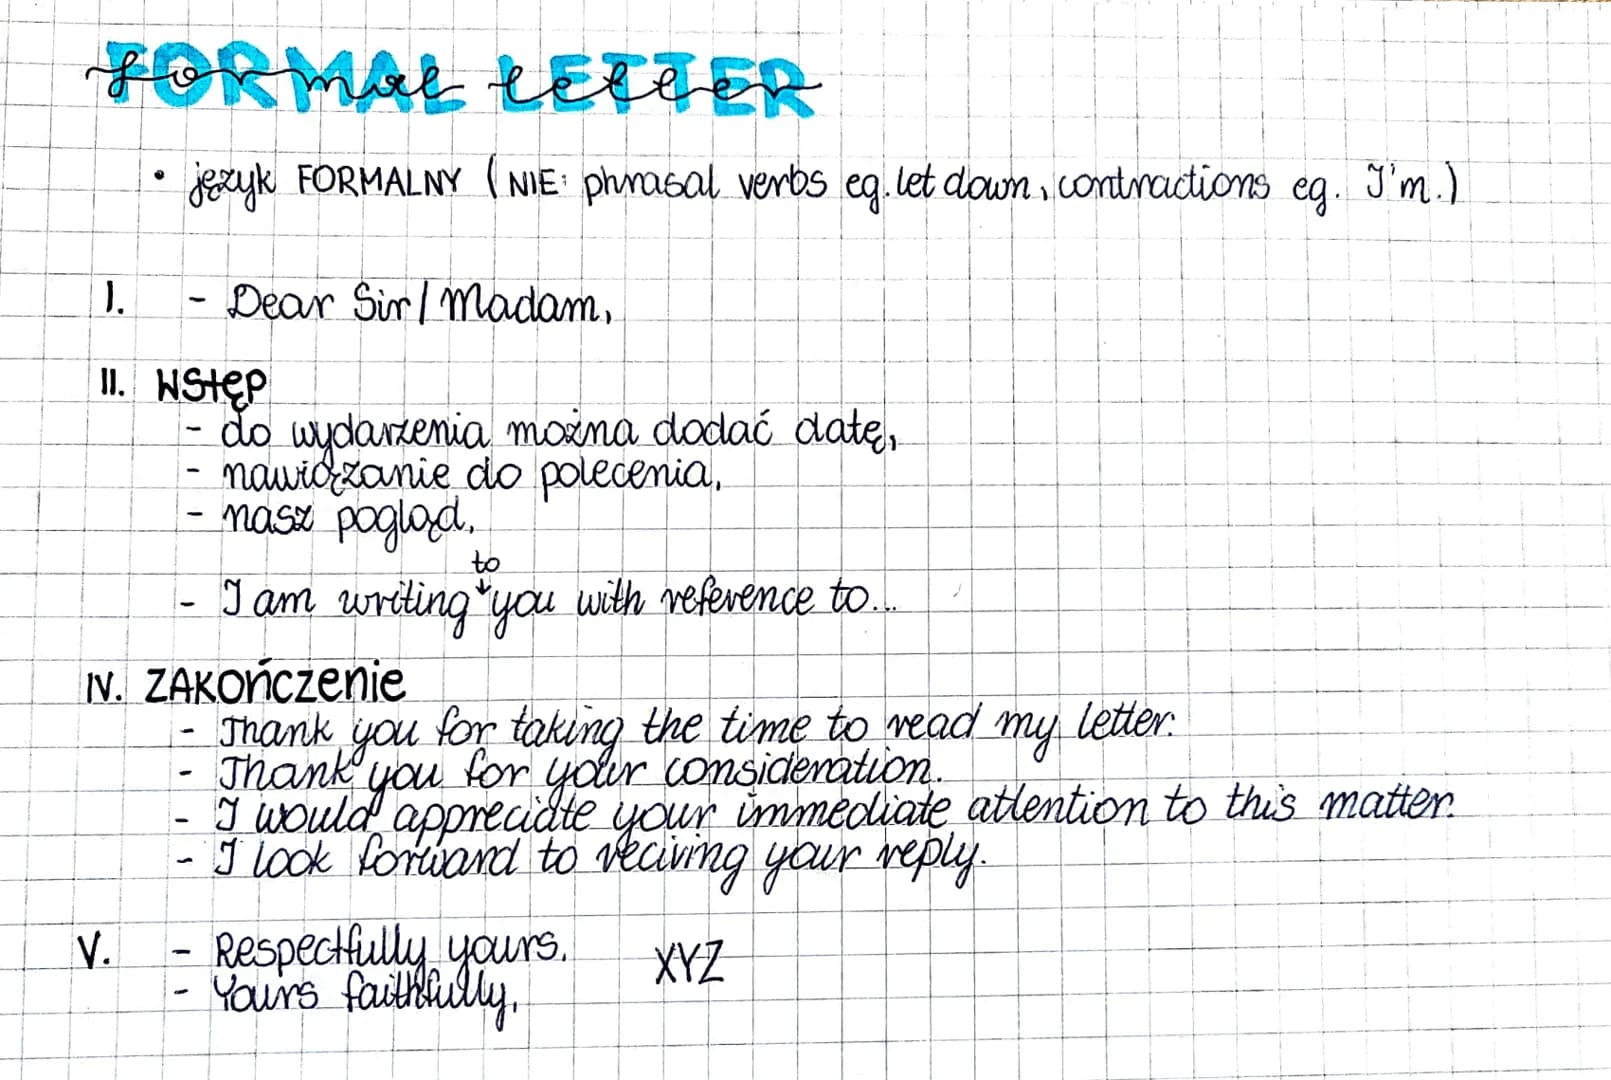 FORMAL LETTER
formal letter
• język FORMALNY (NIE: phrasal verbs eg. let down, contractions eg. I'm.)
I. - Dear Sir/Madam,
II. WSTĘP
- do wydarzenia można dodać datę,
- nawiązanie do polecenia,
- nasz pogląd,
to
- I am writing you with reference to...
IV. ZAKOŃCZENIE
- Thank you for taking the time to read my letter.
- Thank you for your consideration.
- I would appreciate your immediate attention to this matter.
- I look forward to reciving your reply.
V. - Respectfully yours, XYZ
- Yours faithfully,